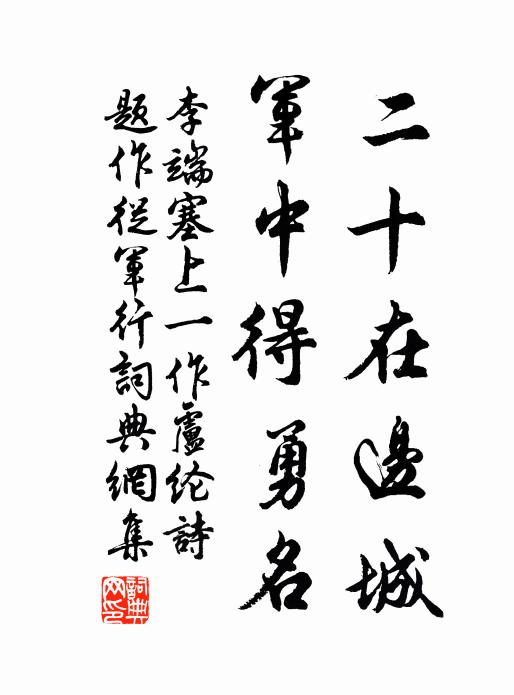 二十在邊城
軍中得勇名
李端塞上一作盧纶詩
題作從軍行詞典網集
詞典网印